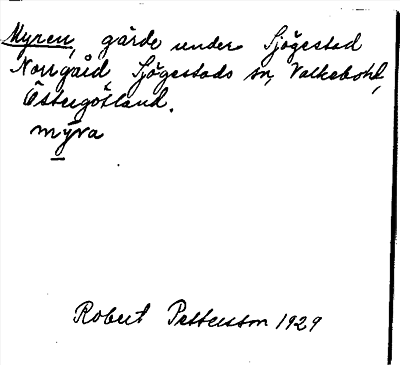 Myren, gärde under Sjögestad
Norrgård, Sjögestads sn, Valkebohd,
Östergötland.
mȳra
Robert Pettersson 1929